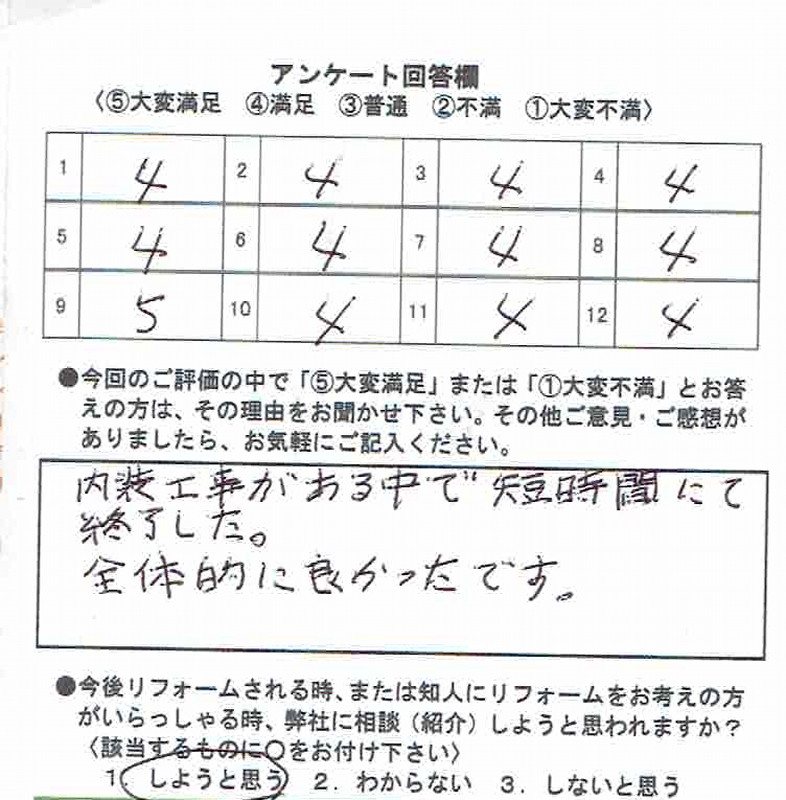 アンケート回答欄
〈⑤大変満足　④満足　③普通　②不満　①大変不満〉
1 4 2 4 3 4 4 4
5 4 6 4 7 4 8 4
9 5 10 4 11 4 12 4
●今回のご評価の中で「⑤大変満足」または「①大変不満」とお答
えの方は、その理由をお聞かせ下さい。その他ご意見・ご感想が
ありましたら、お気軽にご記入ください。
内装工事がある中で短時間にて
終了した。
全体的に良かったです。
●今後リフォームされる時、または知人にリフォームをお考えの方
がいらっしゃる時、弊社に相談（紹介）しようと思われますか？
〈該当するものに○をお付け下さい〉
1．しようと思う　2．わからない　3．しないと思う